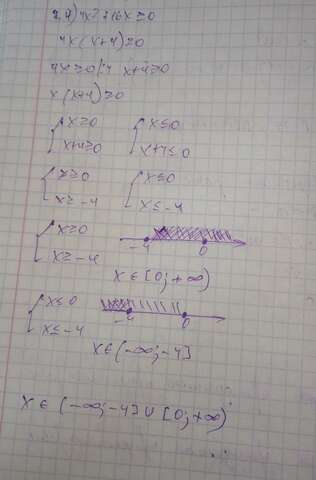 2.4) 4x²+16x≥0
4x(x+4)≥0
4x≥0|:4 x+4≥0
x(x+4)≥0
{x≥0 {x≤0
x+4≥0 x+4≤0
{x≥0 {x≤0
x≥-4 x≤-4
{x≥0
x≥-4
-4 0
x∈[0;+∞)
{x≤0
x≤-4
-4 0
x∈(-∞;-4]
x∈(-∞;-4]∪[0;+∞)